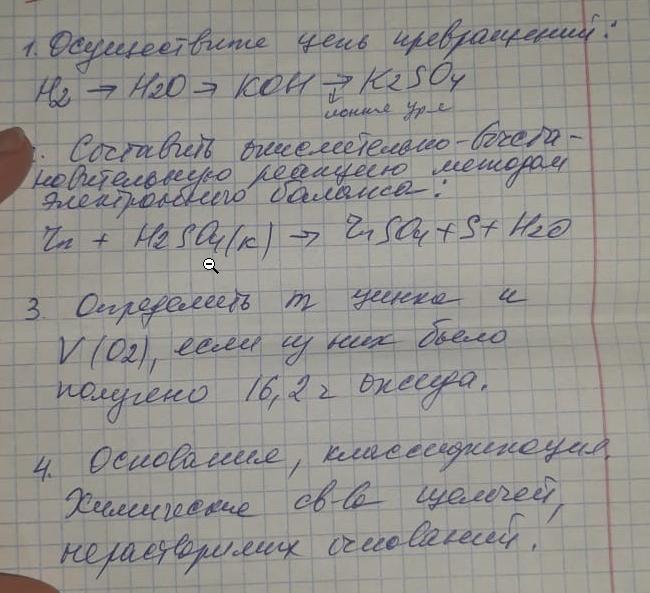 1. Осуществите цепь превращений:
H2 → H2O → KOH → K2SO4
ионные ур-е
. Составить окислительно-восста-
новительную реакцию методом
электронного баланса:
Zn + H2SO4(к) → ZnSO4 + S + H2O
3. Определить m цинка и
V(O2), если из них было
получено 16,2 г оксида.
4. Основания, классификация.
Химические св-ва щелочей,
нерастворимых оснований.